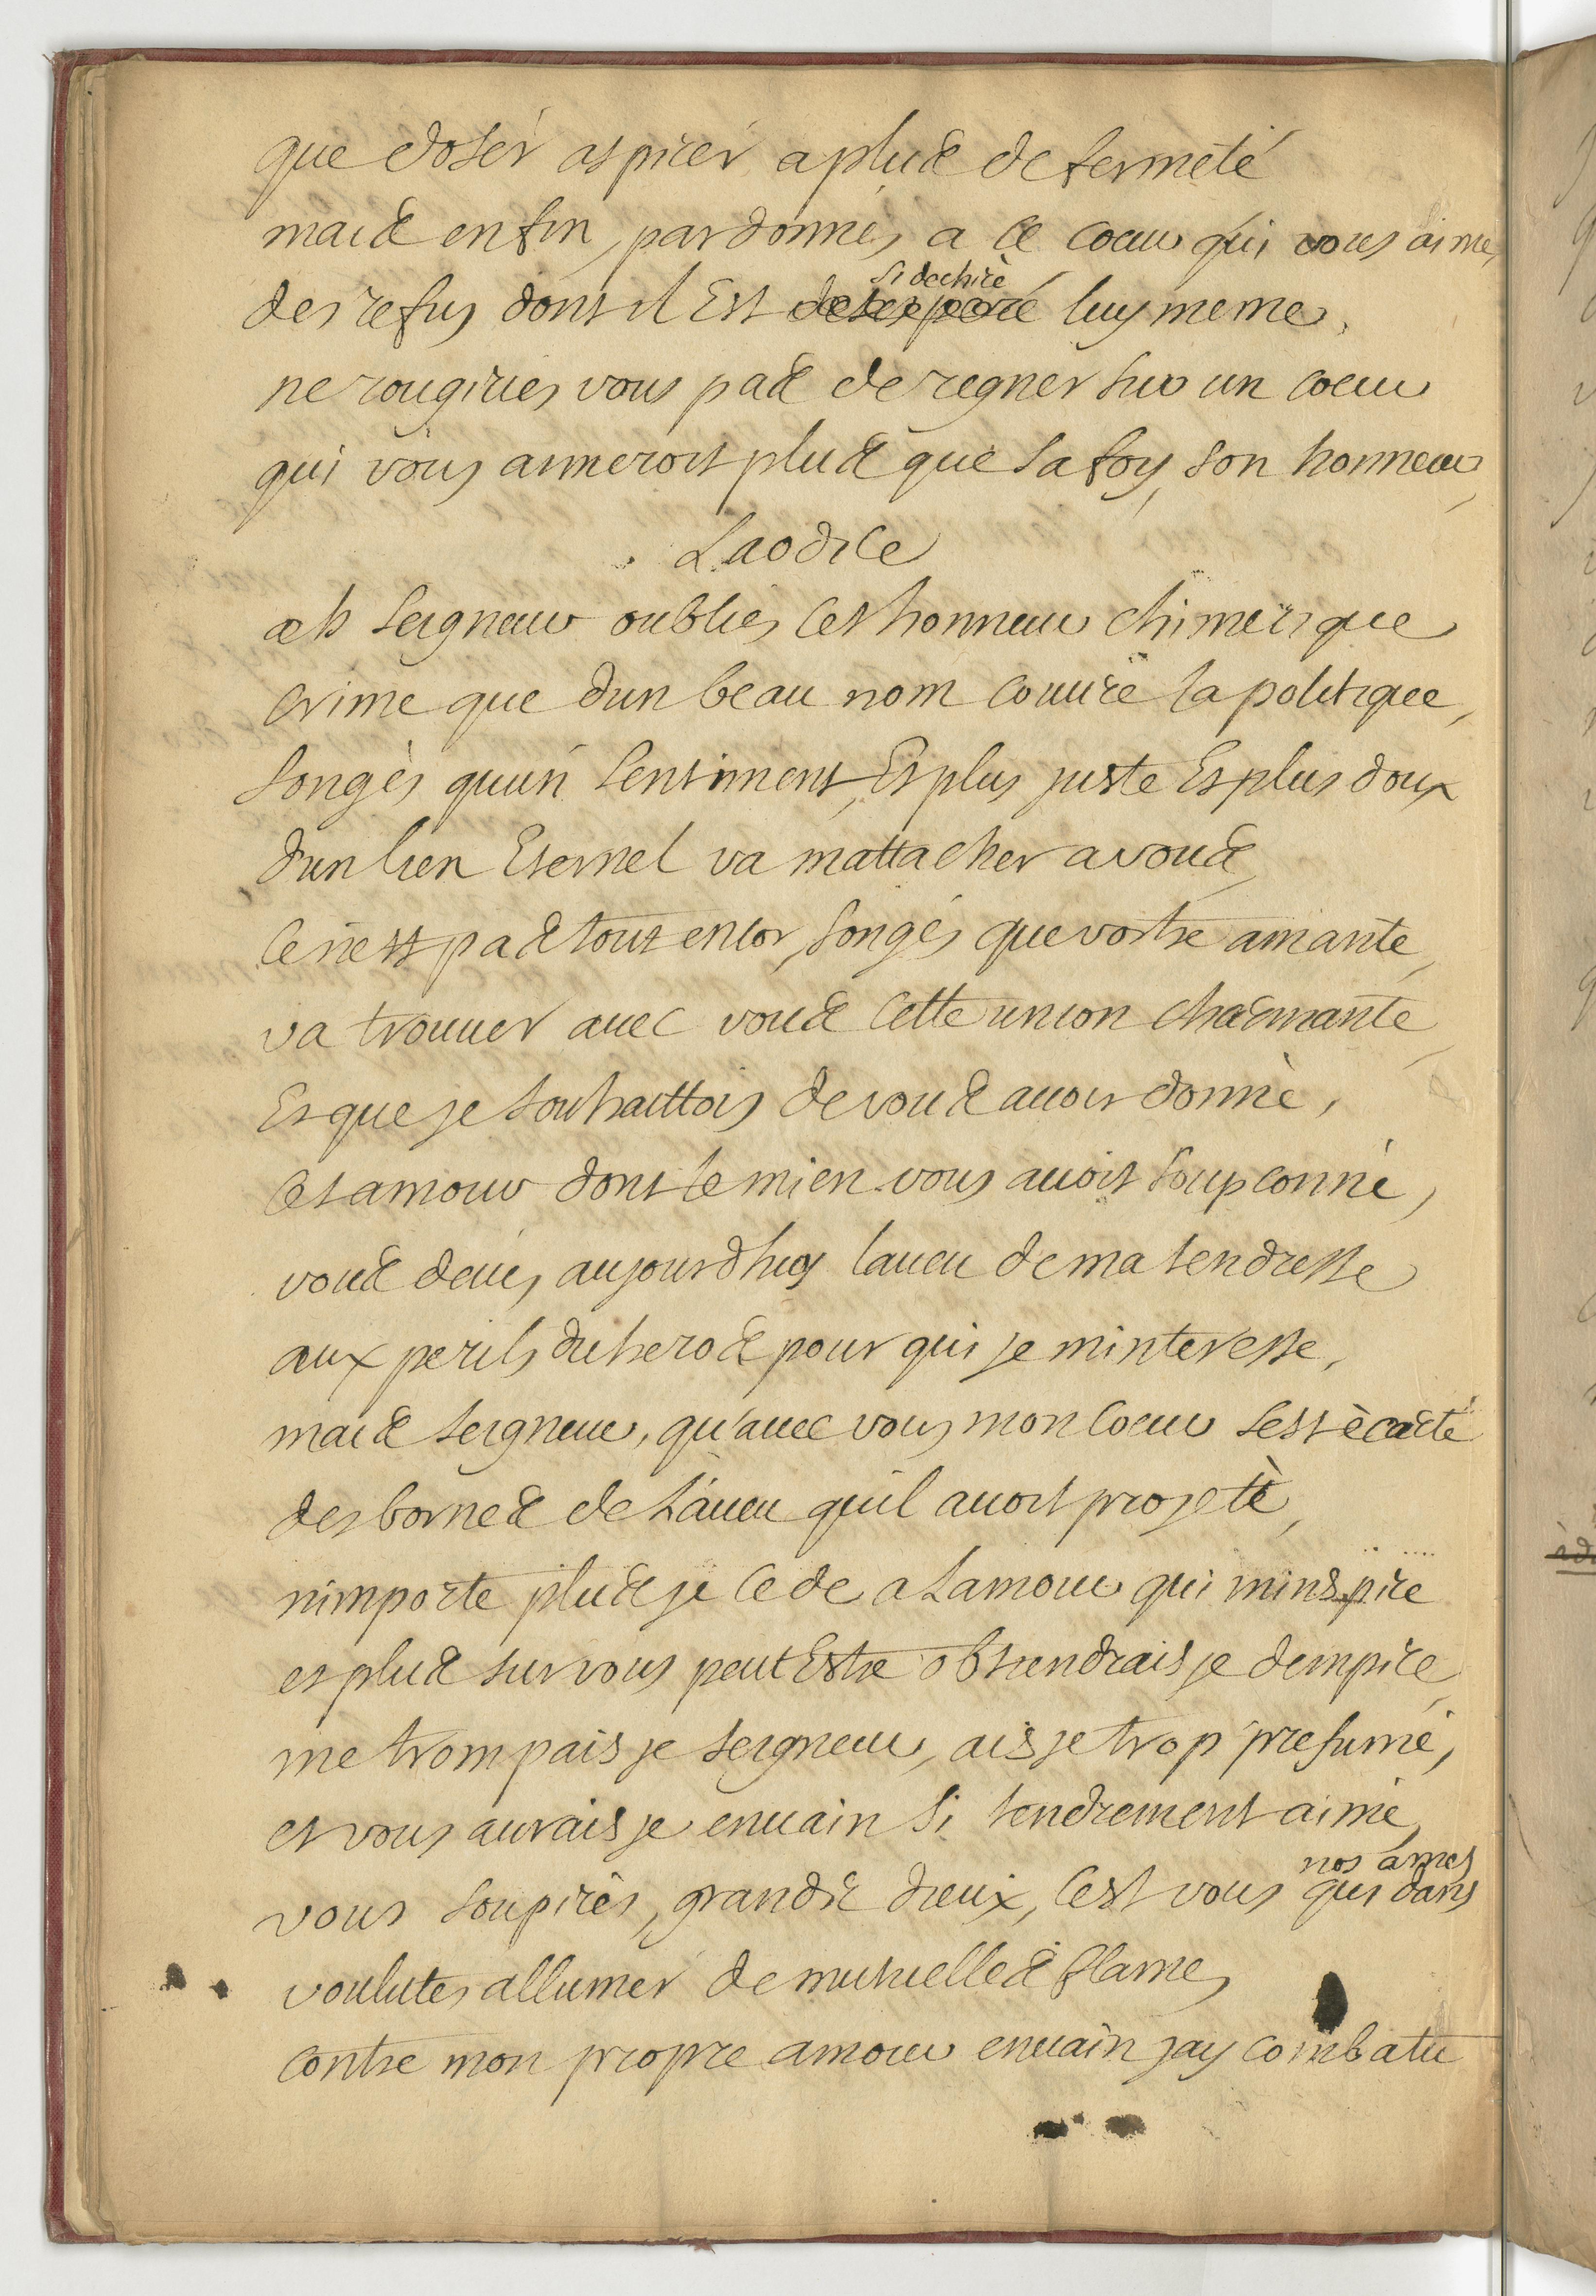 que doser aspirer a plus de fermeté
mais enfin, pardonnés a ce coeur qui vous aime,
des refus dont il Est desesperé si dechiré luy meme,
ne rougiriés vous pas de regner sur un coeur
qui vous aimeroit plus que sa foy, son honneur,
Laodice
ah seigneur oubliés cet honneur chimerique
crime que dun beau nom couure la politique,
songés quun sentiment, Et plus juste Et plus doux
dun lien Eternel va mattacher a vous,
ce nest pas tout encor, songés que vostre amante,
va trouuer auec vous cette union charmante,
Et que je souhaittois de vous auoir donné,
cet amour dont le mien vous auoit soupconné,
vous deués aujourdhuy laueu de ma tendresse
aux perils du heros pour qui je minteresse,
mais seigneur, qu'auec vous mon coeur sest écarté
des bornes de L'aueu quil auoit projeté,
nimporte plus je cede a Lamour qui minspire
et plus sur vous peutEstre obtiendrais je dempire,
me trompais je seigneur, ais je trop presumé,
et vous aurais je enuain si tendrement aimé,
vous soupirés, grands dieux, cest vous qui dans nos ames
voulutes allumer de mutuelles flames
contre mon propre amour enuain jay combatu